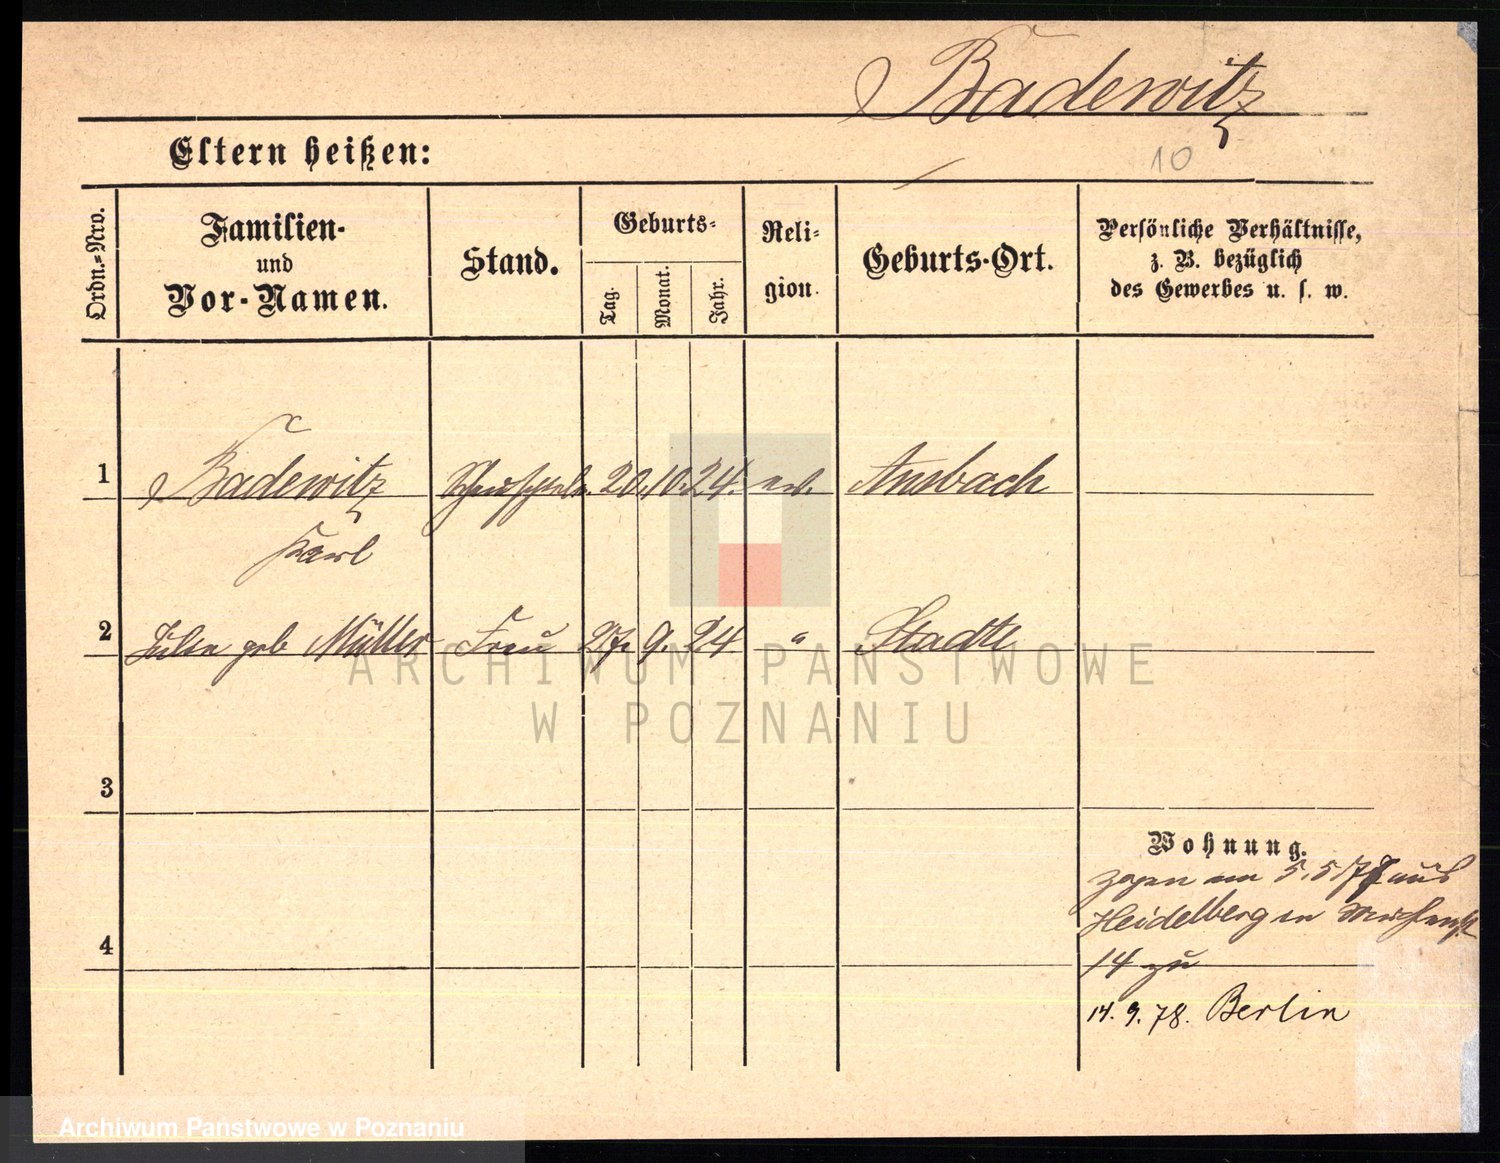 Badewitz
10
Eltern heißen:
Ordn.=Nro.
Familien-
und
Vor-Namen.
Stand.
Geburts=
Tag.
Monat.
Jahr.
Reli=
gion.
Geburts-Ort.
Persönliche Verhältnisse,
z. B. bezüglich
des Gewerbes u. s. w.
1 Badewitz 20. 10. 24. Ansbach
Karl
2 geb Müller Frau 27. 9. 24 " Stadte
3
Wohnung.
zogen am 5. 5. 77 aus
Heidelberg in
4
14 zu
14. 9. 78. Berlin
ARCHIWUM PAŃSTWOWE
W POZNANIU
Archiwum Państwowe w Poznaniu